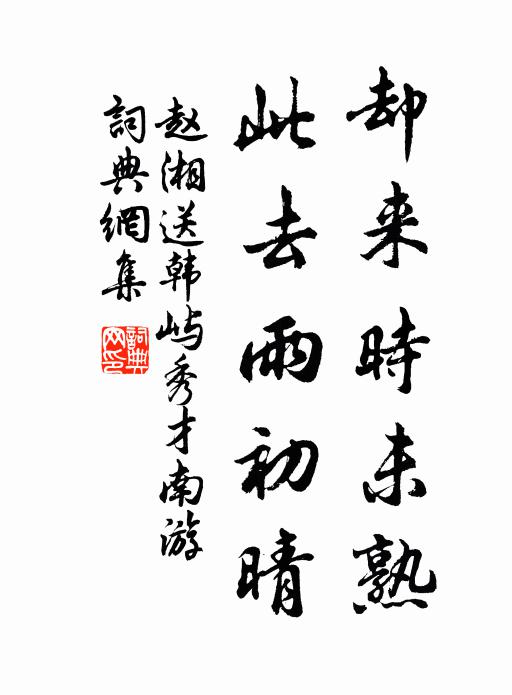 却来時未熟
此去雨初晴
赵湘送韩屿秀才南游
詞典網集
詞典网印